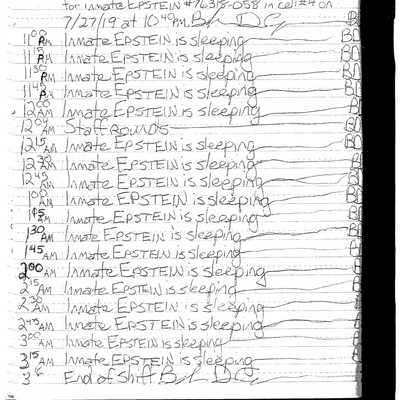 for inmate EPSTEIN #76318-058 in cell #4 on
7/27/19 at 1040PM.
1100 PM Inmate EPSTEIN is sleeping BD
1115 PM Inmate EPSTEIN is sleeping BD
1130 PM Inmate EPSTEIN is sleeping BD
1145 PM Inmate EPSTEIN is sleeping BD
1200 AM Inmate EPSTEIN is sleeping BD
1204 AM Staff rounds BD
1215 AM Inmate EPSTEIN is sleeping BD
1230 AM Inmate EPSTEIN is sleeping BD
1245 AM Inmate EPSTEIN is sleeping BD
100 AM Inmate EPSTEIN is sleeping BD
115 AM Inmate EPSTEIN is sleeping BD
130 AM Inmate EPSTEIN is sleeping BD
145 AM Inmate EPSTEIN is sleeping BD
200 AM Inmate EPSTEIN is sleeping BD
215 AM Inmate EPSTEIN is sleeping BD
230 AM Inmate EPSTEIN is sleeping BD
245 AM Inmate EPSTEIN is sleeping BD
300 AM Inmate EPSTEIN is sleeping BD
315 AM Inmate EPSTEIN is sleeping BD
End of Shift